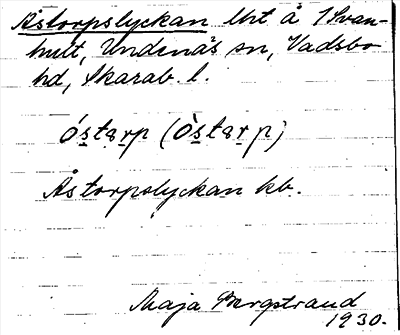 Åstorpslyckan lht å 1 Svan-
hult, Undenäs sn, Vadsbo
hd, Skarab. l.
óstarp (òstarp)
Åstorpslyckan kb.
Maja Bergstrand
1930.